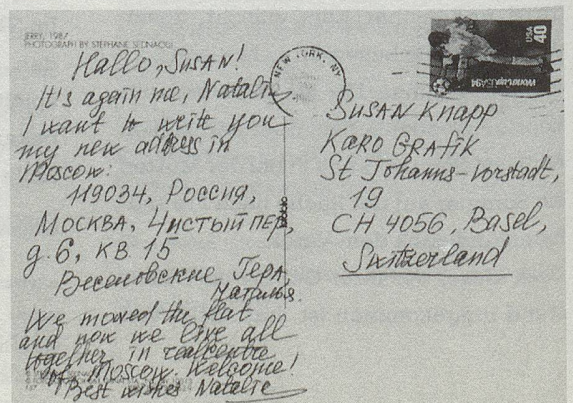 JERRY, 1987
PHOTOGRAPH BY STÉPHANE SEDNAOUI
Hallo, SUSAN!
It's again me, Natalie.
I want to write you
my new address in
Moscow:
119034, Россия,
Москва, Чистый пер,
д. 6, кв. 15
Веселовские Гера,
Наталья.
We moved the flat
and now we live all
together in realcentre
of Moscow. Welcome!
Best wishes Natalie
NEW YORK, NY
USA
40
WorldCupUSA94
SUSAN Knapp
KARO GRAFIK
St Johanns-vorstadt,
19
CH 4056, Basel,
Switzerland